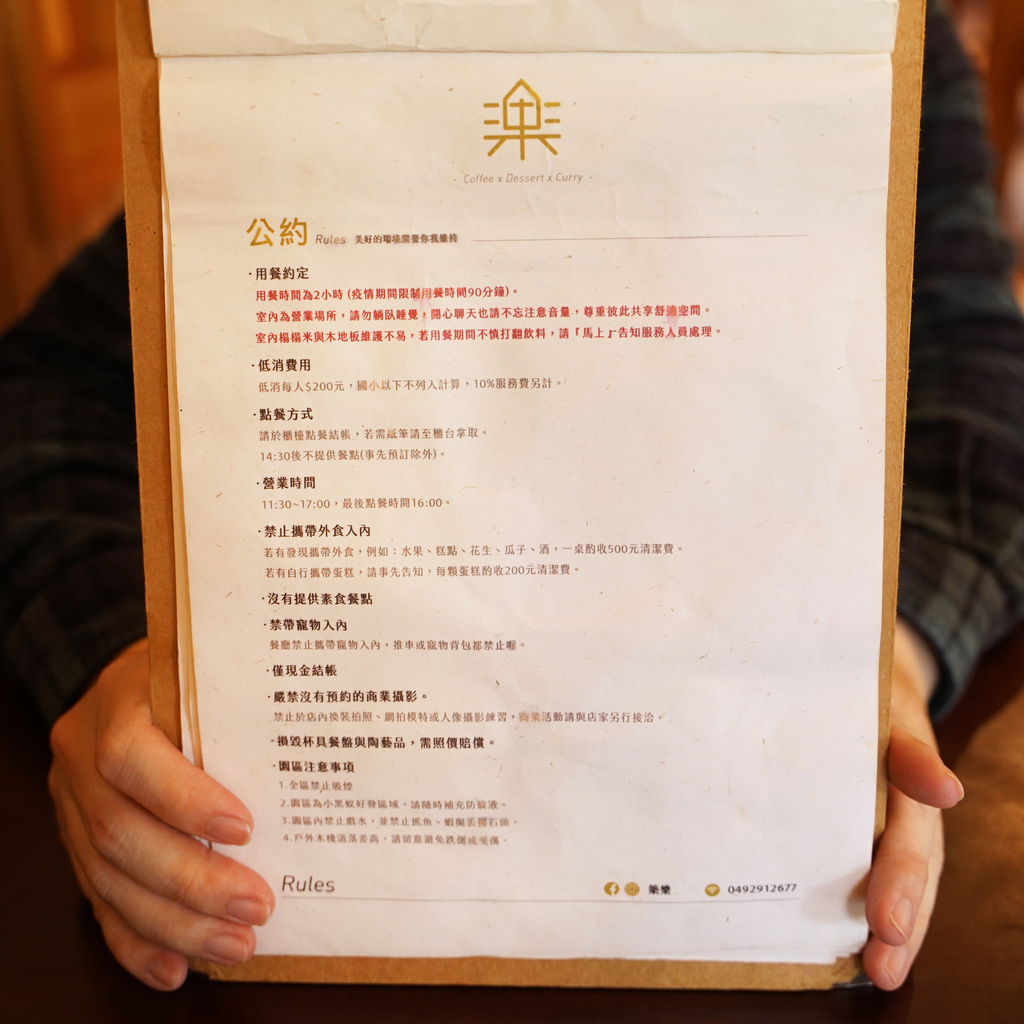 樂
- Coffee x Dessert x Curry -
公約 Rules 美好的環境需要你我維持
·用餐約定
用餐時間為2小時 (疫情期間限制用餐時間90分鐘)。
室內為營業場所，請勿躺臥睡覺，開心聊天也請不忘注意音量，尊重彼此共享舒適空間。
室內榻榻米與木地板維護不易，若用餐期間不慎打翻飲料，請『馬上』告知服務人員處理。
·低消費用
低消每人$200元，國小以下不列入計算，10%服務費另計。
·點餐方式
請於櫃檯點餐結帳，若需紙筆請至櫃台拿取。
14:30後不提供餐點(事先預訂除外)。
·營業時間
11:30~17:00，最後點餐時間16:00。
·禁止攜帶外食入內
若有發現攜帶外食，例如：水果、糕點、花生、瓜子、酒，一桌酌收500元清潔費。
若有自行攜帶蛋糕，請事先告知，每顆蛋糕酌收200元清潔費。
·沒有提供素食餐點
·禁帶寵物入內
餐廳禁止攜帶寵物入內，推車或寵物背包都禁止喔。
·僅現金結帳
·嚴禁沒有預約的商業攝影。
禁止於店內換裝拍照、網拍模特或人像攝影練習，商業活動請與店家另行接洽。
·損毀杯具餐盤與陶藝品，需照價賠償。
·園區注意事項
1.全區禁止吸煙
2.園區為小黑蚊好發區域，請隨時補充防蚊液。
3.園區內禁止戲水，並禁止抓魚、蝦與丟擲石頭。
4.戶外木棧道落差高，請留意避免跌倒或受傷。
Rules
築樂 0492912677